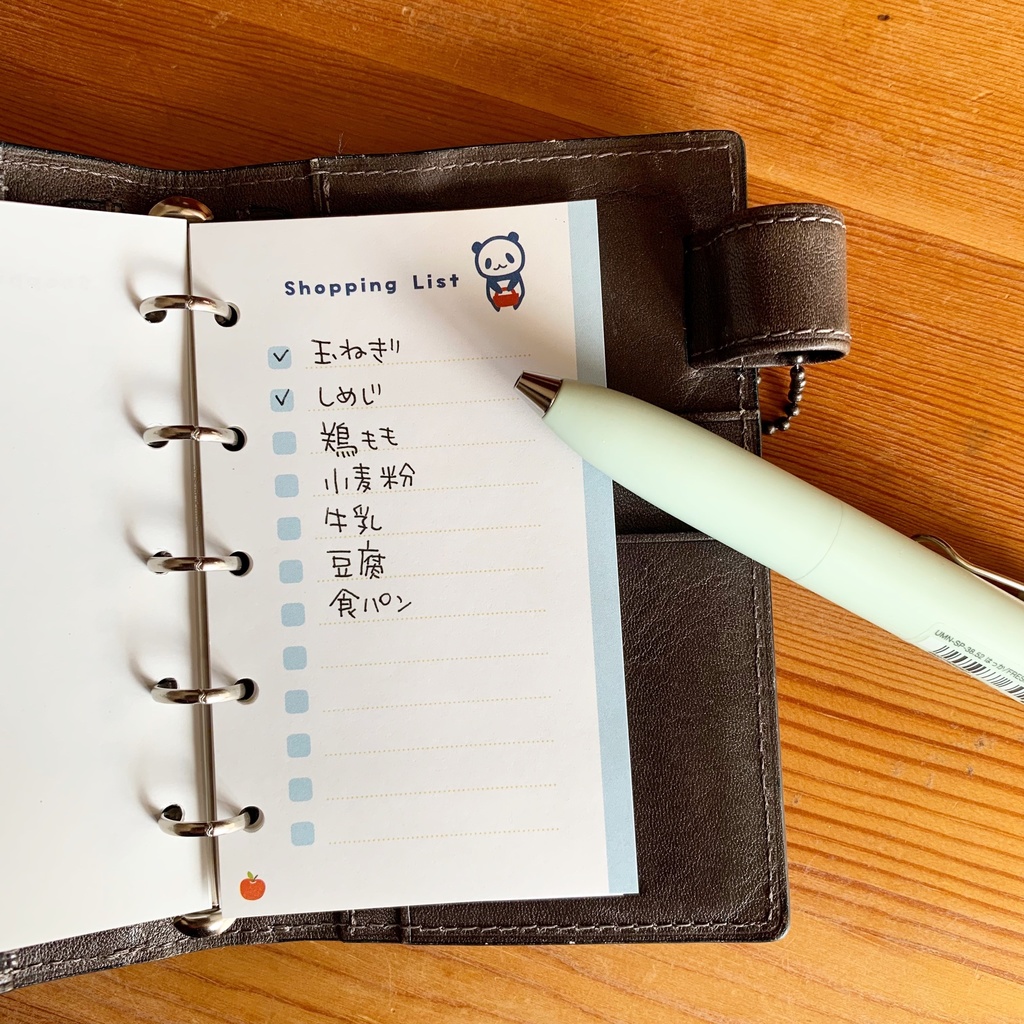 Shopping List
玉ねぎ
しめじ
鶏もも
小麦粉
牛乳
豆腐
食パン
UMN-SP-38.52 はっか/FRES